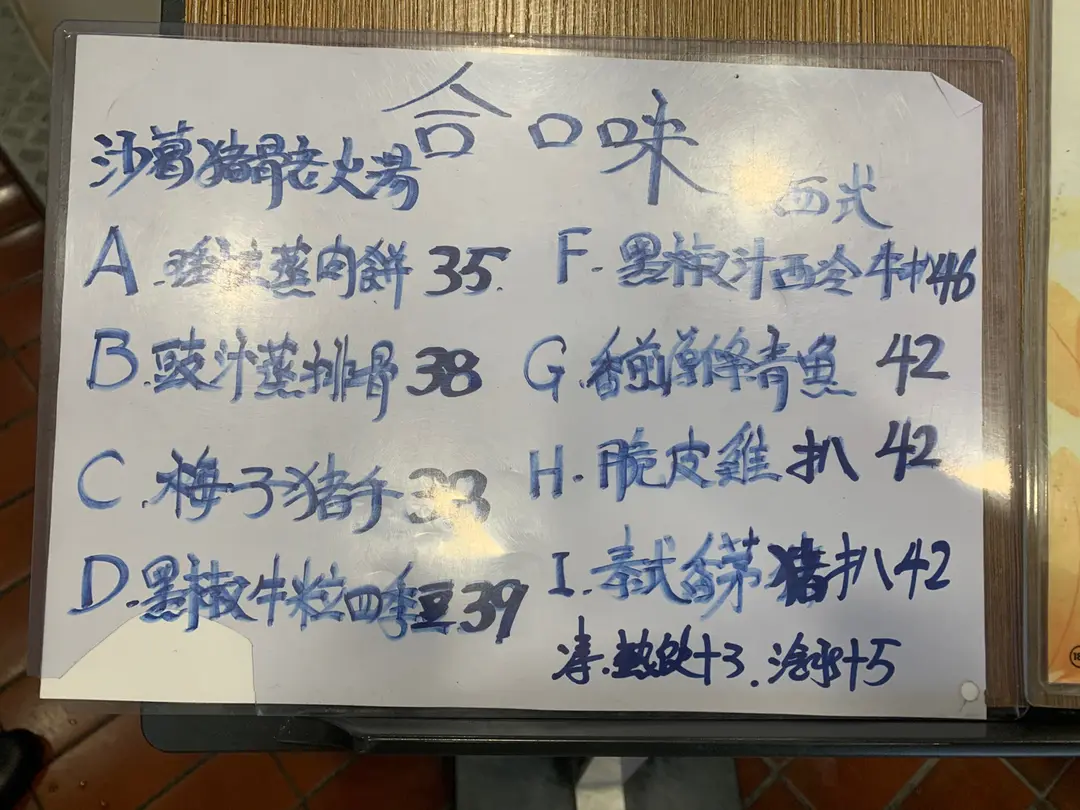 合口味
沙葛猪骨老火湯
A. 蒸肉餅 35.
B. 豉汁蒸排骨 38
C. 梅子猪手
D. 黑椒牛粒四季豆 39
西式
F. 黑椒汁西冷牛扒 46
G. 香煎青魚 42
H. 脆皮雞扒 42
I. 泰式香茅猪扒 42
熱飲+3. +5